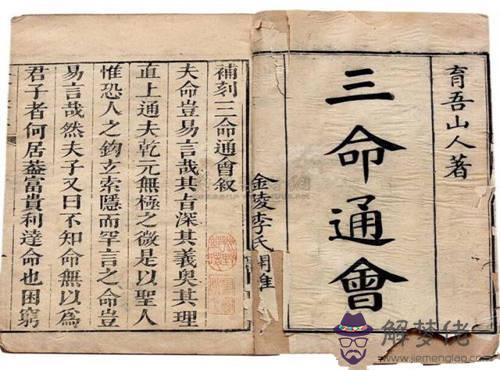 育吾山人著
三命通會
金陵李氏
補刻三命通會叙
夫命豈易言哉其旨深其義奧其理
直上通夫乾元無極之微是以聖人
惟恐人之鉤玄索隱而罕言之命豈
易言哉然夫子又曰不知命無以為
君子者何居葢富貴利達命也困窮
解梦佬
www.jiemenglao.com